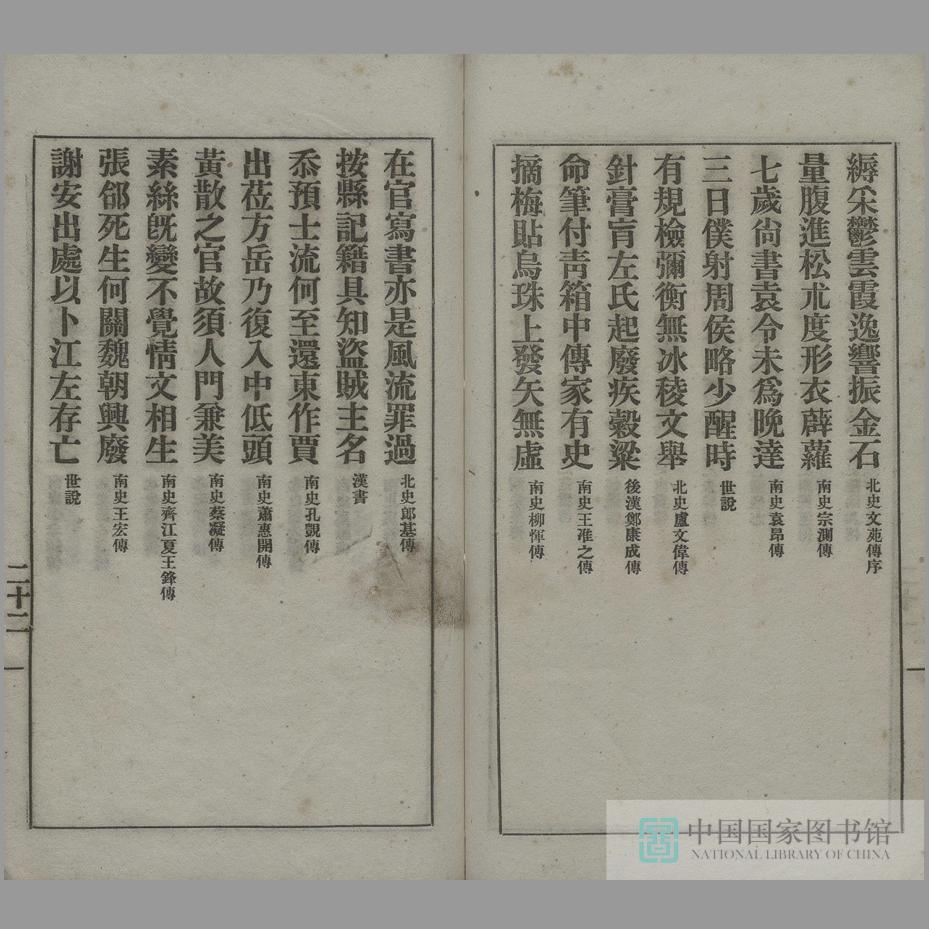 縟采鬱雲霞逸響振金石 北史文苑傳序
量腹進松朮度形衣薜蘿 南史宗測傳
七歲尙書袁令未爲晚達 南史袁昂傳
三日僕射周侯略少醒時 世說
有規檢彌衡無冰稜文舉 北史盧文偉傳
針膏肓左氏起廢疾穀梁 後漢鄭康成傳
命筆付靑箱中傳家有史 南史王淮之傳
摘梅貼烏珠上發矢無虛 南史柳惲傳
在官寫書亦是風流罪過 北史郎基傳
按縣記籍具知盜賊主名 漢書
忝預士流何至還東作賈 南史孔覬傳
出莅方岳乃復入中低頭 南史蕭惠開傳
黃散之官故須人門兼美 南史蔡凝傳
素絲旣變不覺情文相生 南史齊江夏王鋒傳
張郃死生何關魏朝興廢 南史王宏傳
謝安出處以卜江左存亡 世說
二十二
中国国家图书馆
NATIONAL LIBRARY OF CHINA